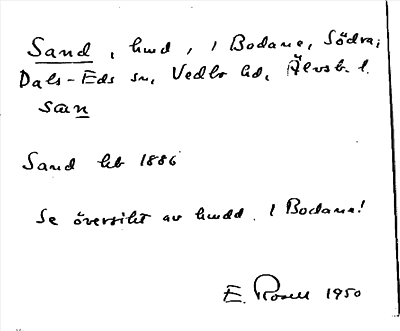 Sand, hmd, i Bodane, Södra,
Dals-Eds sn, Vedbo hd, Älvsb. l.
san
Sand hb 1886
Se översikt av hmdd. i Bodane!
E. Rosell 1950